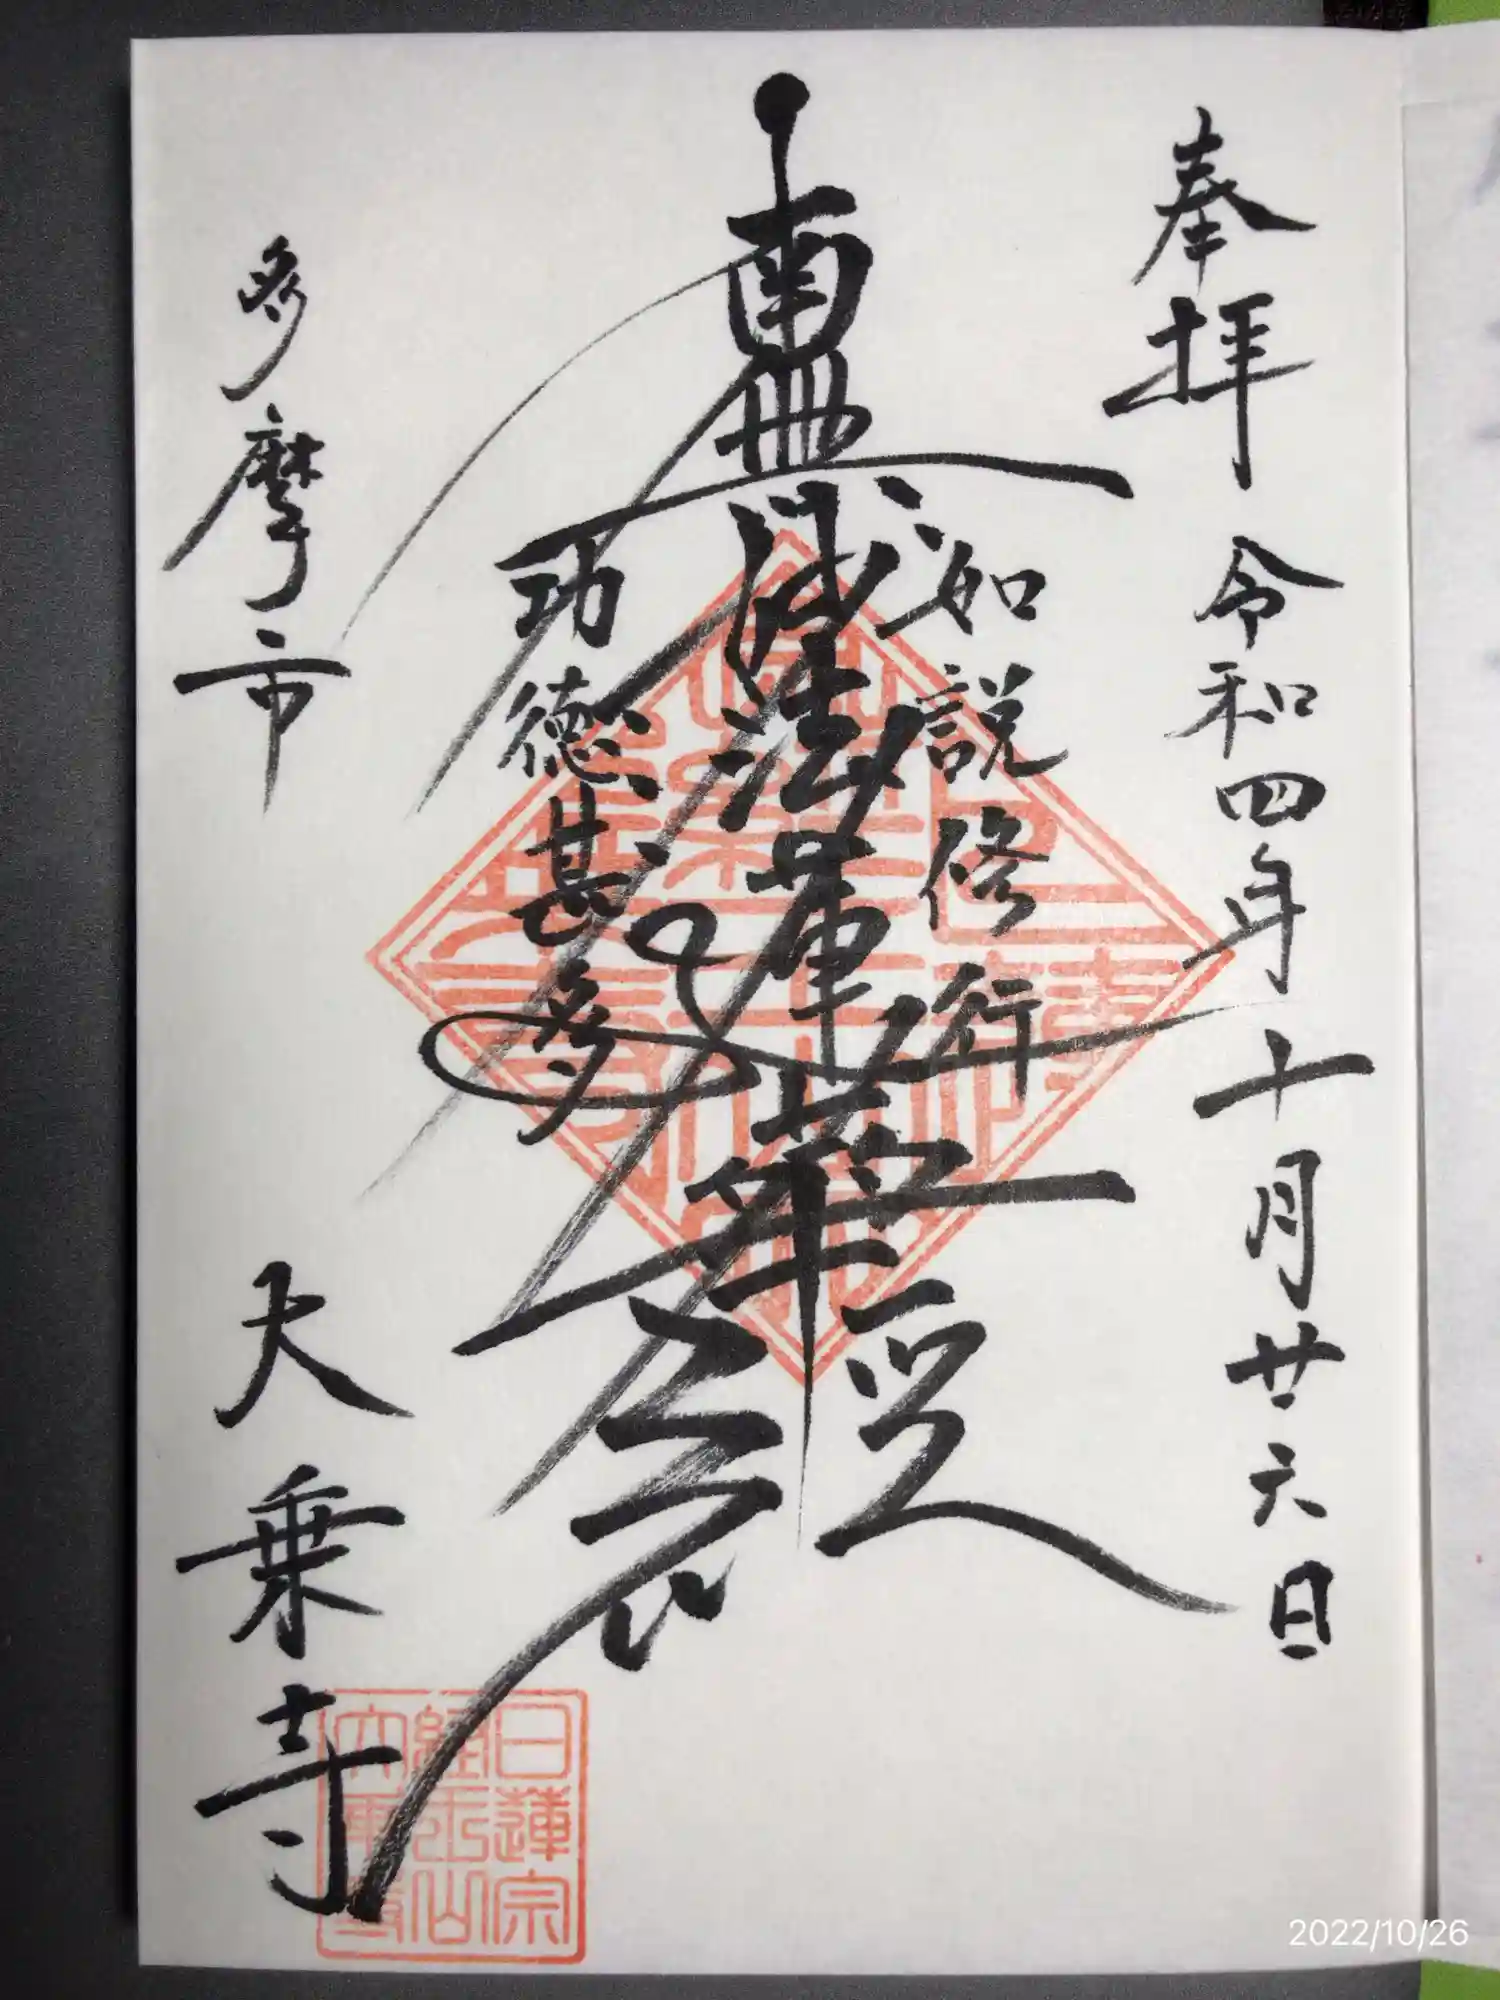 奉拝
令和四年十月廿六日
如説修行
南無妙法蓮華経
功徳甚多
多摩市
大乗寺
日蓮宗
経王山
大乗寺
2022/10/26